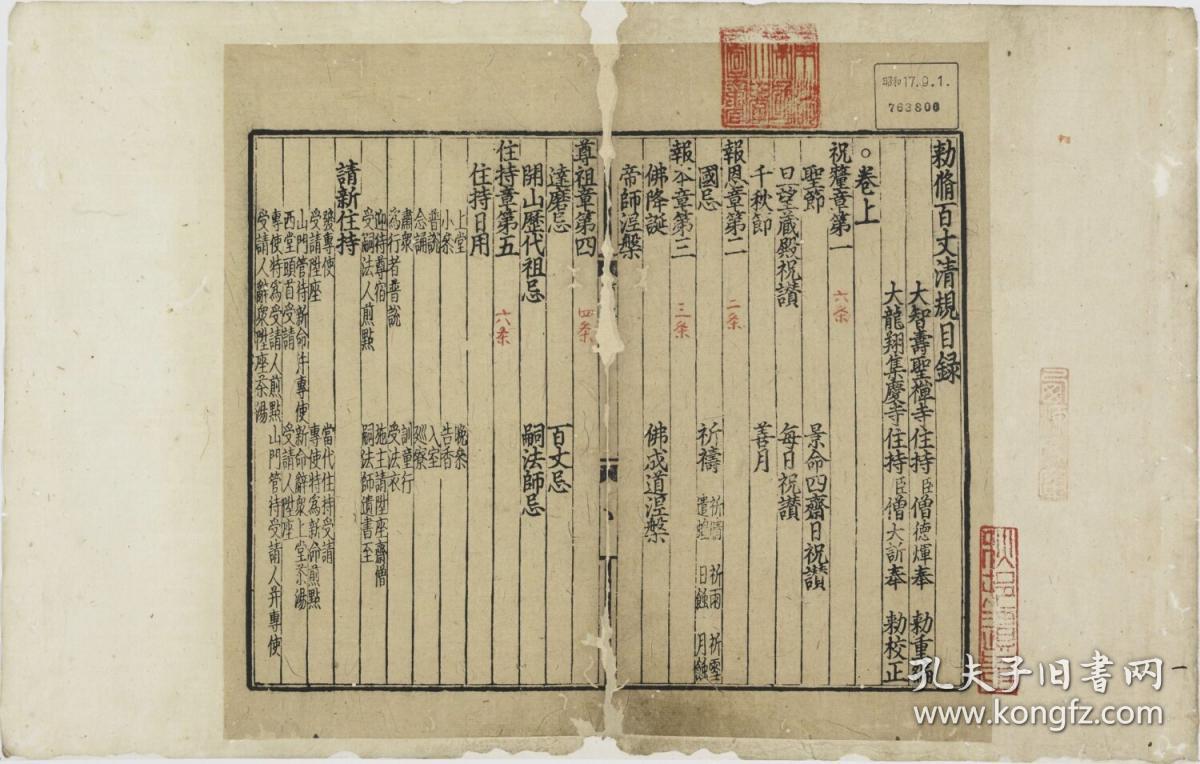 勅脩百丈清規目録
大智壽聖禪寺住持臣僧德煇奉 勅重
大龍翔集慶寺住持臣僧大訢奉 勅校正
○卷上
祝釐章第一 六条
聖節 景命四齋日祝讃
旦望藏殿祝讃 每日祝讃
千秋節 善月
報恩章第二 二条
國忌 祈禱 祈晴 祈雨 祈雪 遣蝗 日蝕 月蝕
報本章第三 三条
佛降誕 佛成道涅槃
帝師涅槃
尊祖章第四 四条
達磨忌 百丈忌
開山歷代祖忌 嗣法師忌
住持章第五 六条
住持日用
上堂 晚參
小參 告香
普說 入室
念誦 巡寮
肅衆 訓童行
為行者普說 受法衣
迎待尊宿 施主請陞座齋僧
受嗣法人煎點 嗣法師遺書至
請新住持
發專使 當代住持受請
受請陞座 專使特為新命煎點
山門管待新命并專使 新命辭衆上堂茶湯
西堂頭首受請 受請人陞座
專使特為受請人煎點 山門管待受請人并專使
受請人辭衆陞座茶湯
昭和17.9.1.
763806
孔夫子旧书网
www.kongfz.com